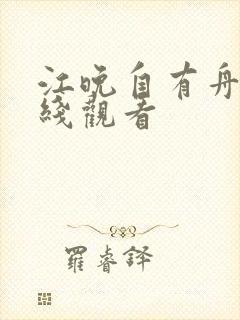 江晚自有舟
綫觀看
羅睿鐸